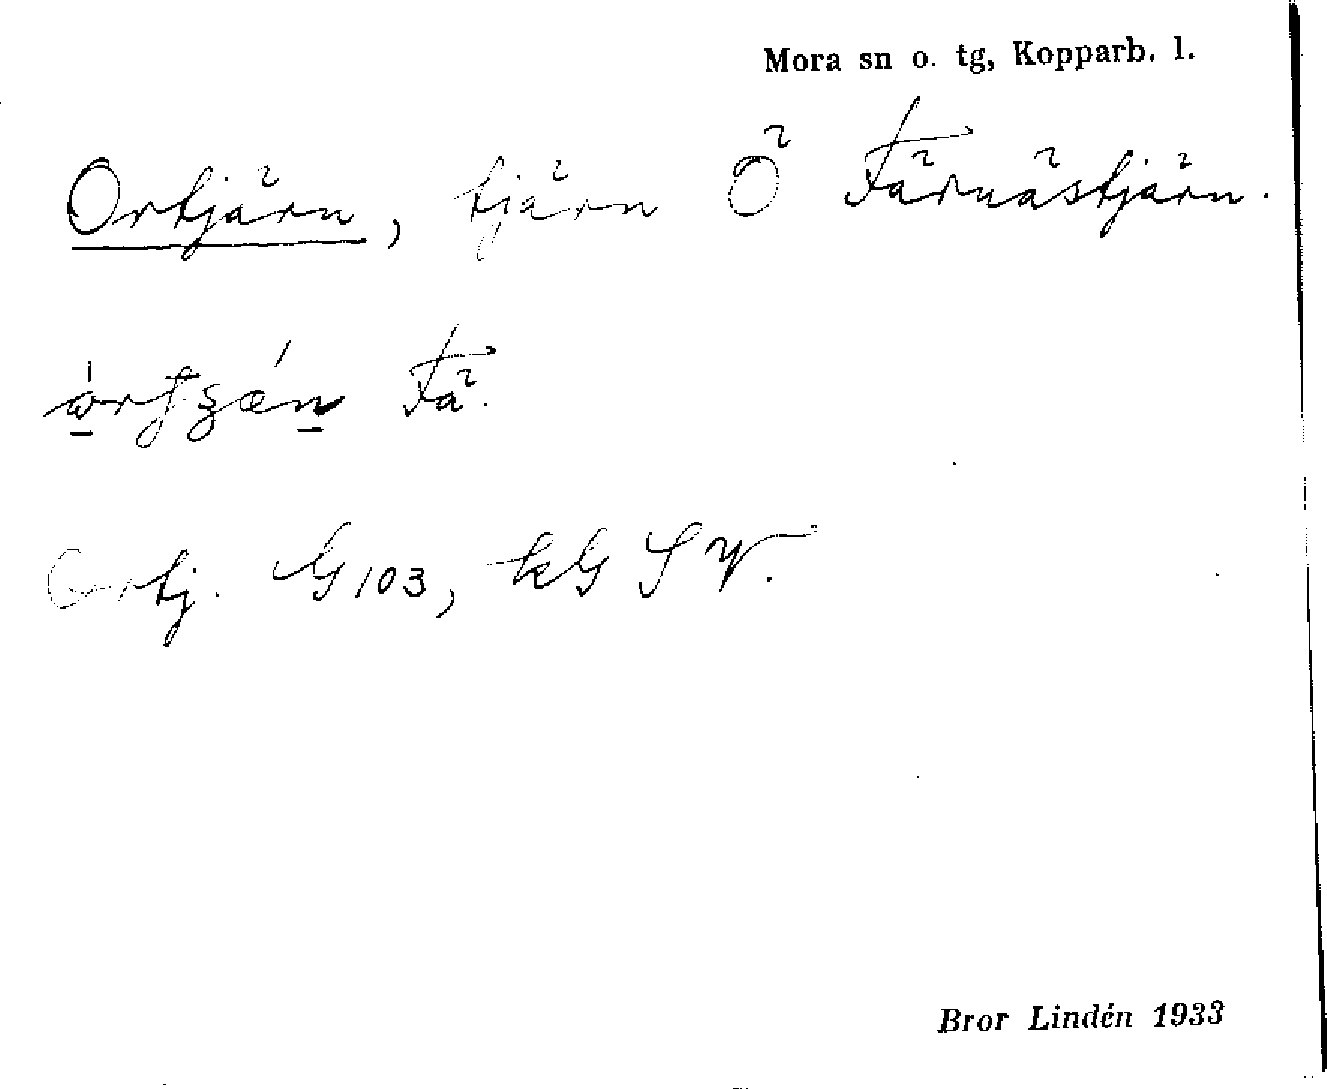 Mora sn o. tg, Kopparb. l.
Ortjärn, tjärn Ö Färnästjärn.
Fä.
Ortj. G103, kG SV.
Bror Lindén 1933